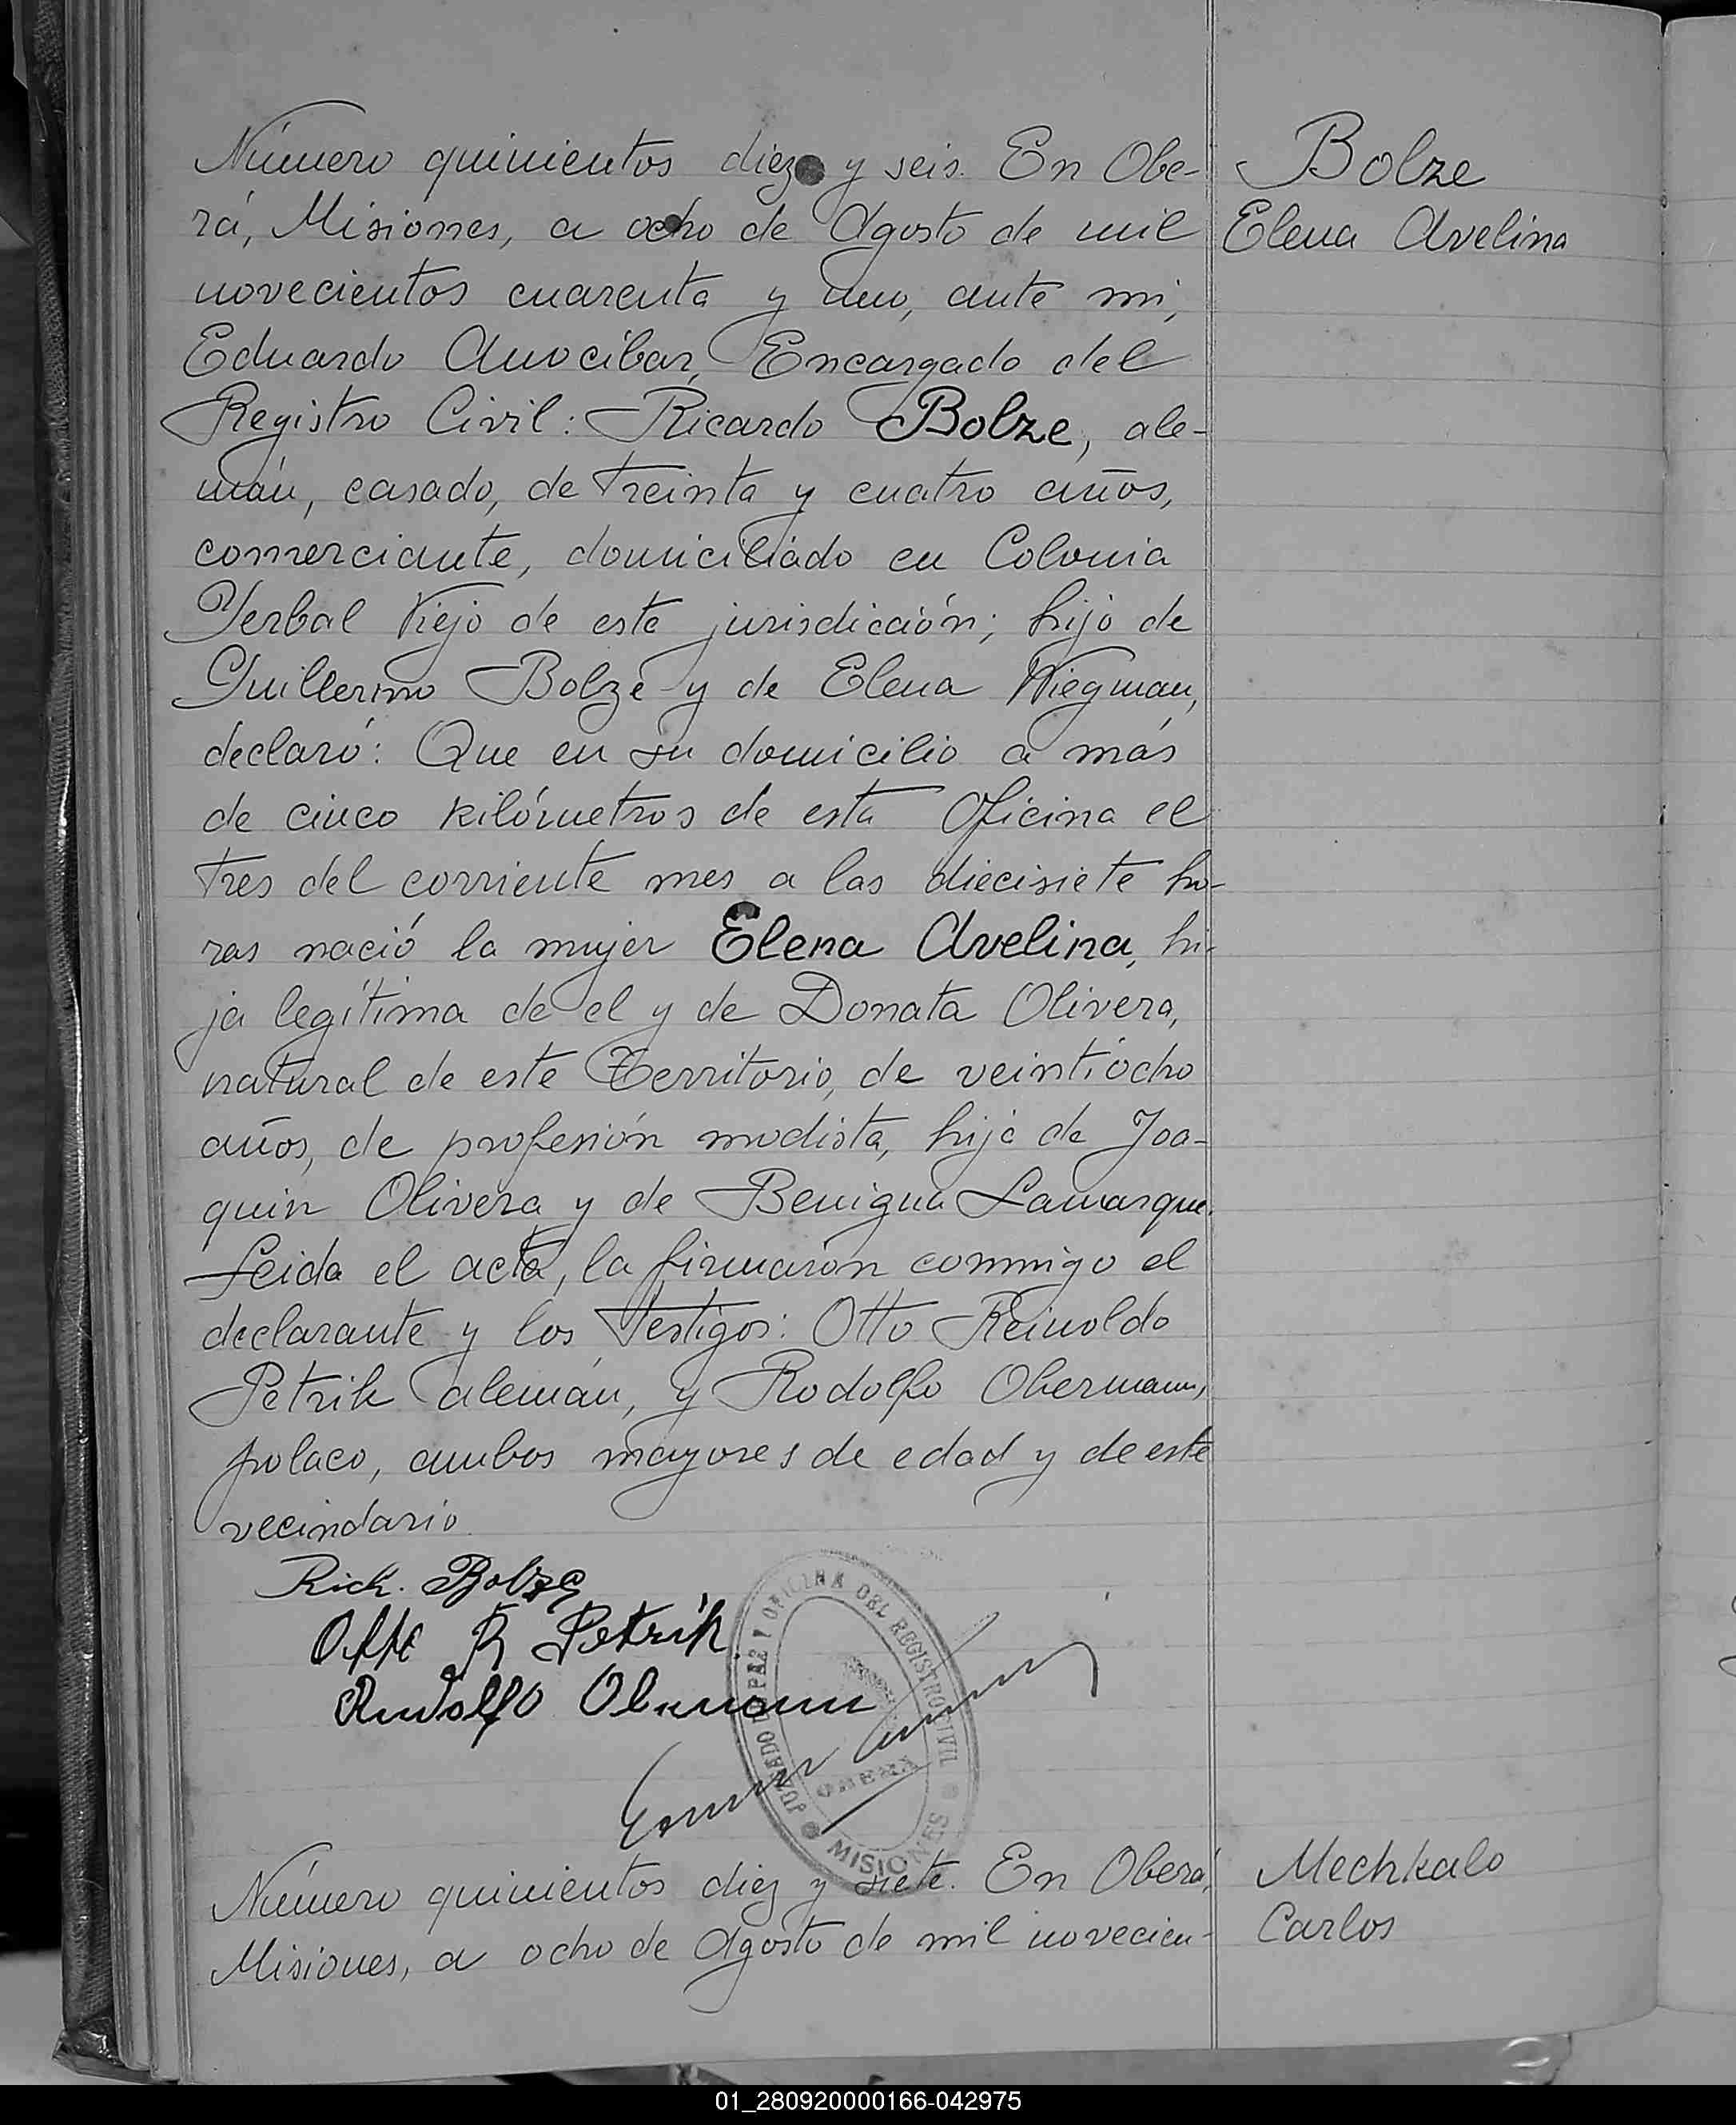 Número quinientos diez y seis. En Obe-
rá, Misiones, a ocho de Agosto de mil
novecientos cuarenta y uno, ante mi,
Eduardo Anocibar, Encargado del
Registro Civil: Ricardo Bolze, ale-
mán, casado, de treinta y cuatro años,
comerciante, domiciliado en Colonia
Yerbal Viejo de esta jurisdicción; hijo de
Guillermo Bolze y de Elena Wiegman,
declaró: Que en su domicilio a más
de cinco kilómetros de esta Oficina el
tres del corriente mes a las diecisiete ho-
ras nació la mujer Elena Avelina, hi-
ja legítima de el y de Donata Olivera,
natural de este Territorio, de veintiocho
años, de profesión modista, hija de Joa-
quin Olivera y de Benigna Lamarque.
Leida el acta, la firmaron conmigo el
declarante y los testigos: Otto Reinoldo
Petrik alemán, y Rodolfo Obermann,
polaco, ambos mayores de edad y de este
vecindario.
Bolze
Elena Avelina
Rich. Bolze
Otto R Petrik
Rudolfo Obermann
JUZGADO DE PAZ Y OFICINA DEL REGISTRO CIVIL
OBERÁ
MISIONES
Número quinientos diez y siete. En Oberá,
Misiones, a ocho de Agosto de mil novecien-
Mechkalo
Carlos
01_280920000166-042975